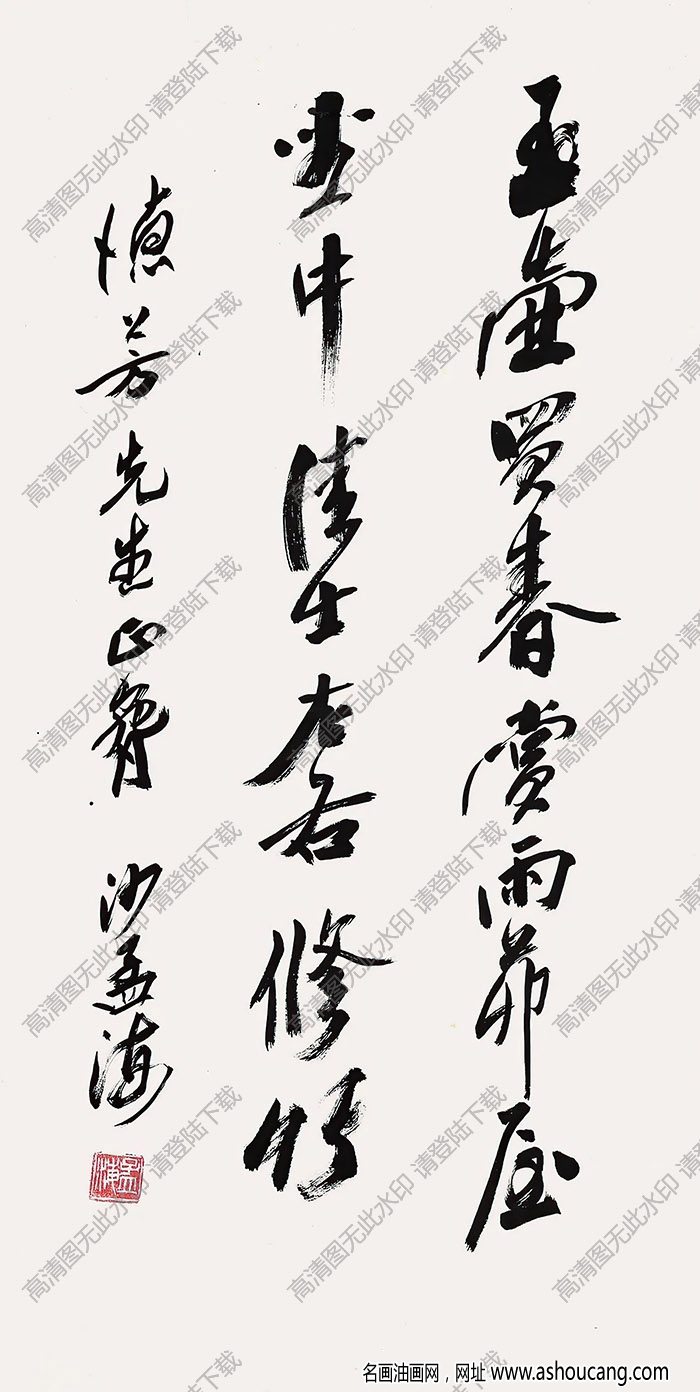 玉壺買春賞雨茆屋
坐中佳士左右修竹
芳先生正
沙孟海
孟海
高清图无此水印 请登陆下载
名画油画网，网址 www.ashoucang.com